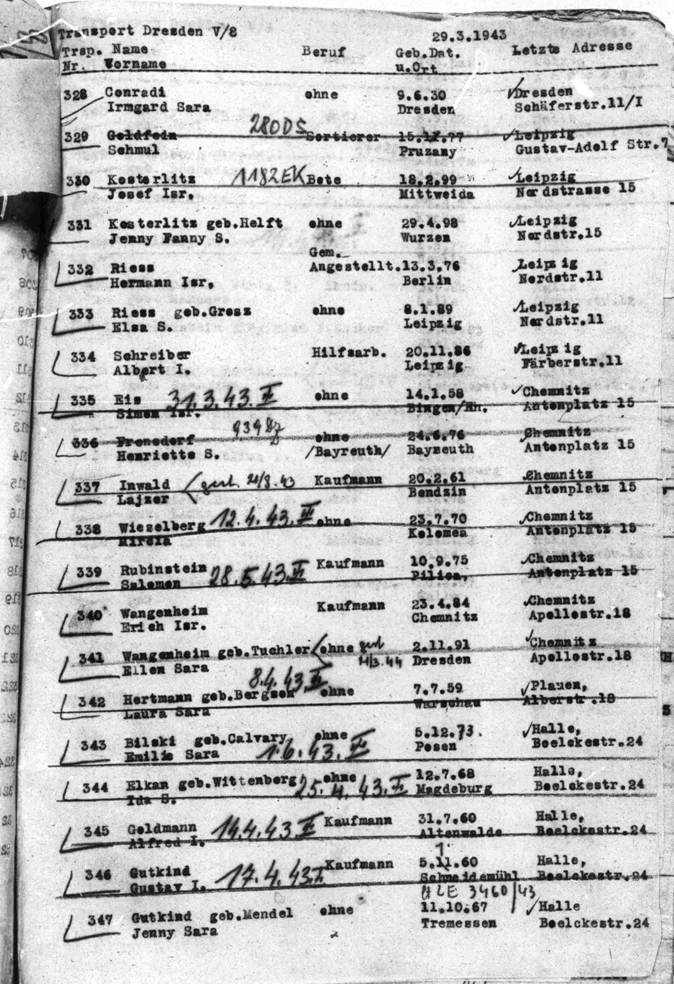 Transport Dresden V/8 29.3.1943
Trsp. Name Beruf Geb.Dat. Letzte Adresse
Nr. Vorname u.Ort
328 Conradi ohne 9.6.30 Dresden
Irmgard Sara Dresden Schäferstr.11/I
329 Goldfein 280DS Sortierer 15.12.77 Leipzig
Schmul Pruzany Gustav-Adolf Str.7
330 Kosterlitz 1182EK Bote 18.2.99 Leipzig
Josef Isr. Mittweida Nordstrasse 15
331 Kosterlitz geb.Helft ohne 29.4.98 Leipzig
Jenny Fanny S. Wurzen Nordstr.15
Gem.
332 Riess Angestellt.13.3.76 Leipzig
Hermann Isr. Berlin Nordstr.11
333 Riess geb.Gross ohne 8.1.89 Leipzig
Elsa S. Leipzig Nordstr.11
334 Schreiber Hilfsarb. 20.11.86 Leipzig
Albert I. Leipzig Färberstr.11
335 Eis 31.3.43.II ohne 14.1.58 Chemnitz
Simon Isr. Bingen/Rh. Antonplatz 15
336 Frensdorf ohne 24.6.76 Chemnitz
Henriette S. /Bayreuth/ Bayreuth Antonplatz 15
337 Inwald Kaufmann 20.2.61 Chemnitz
Lajzer Bendzin Antonplatz 15
338 Wieselberg 12.4.43. ohne 23.7.70 Chemnitz
Mirola Kolomea Antonplatz 15
339 Rubinstein 28.5.43. Kaufmann 10.9.75 Chemnitz
Salomon Pilica, Antonplatz 15
340 Wangenheim Kaufmann 23.4.84 Chemnitz
Erich Isr. Chemnitz Apollostr.18
341 Wangenheim geb.Tuchler ohne 2.11.91 Chemnitz
Ellen Sara Dresden Apollostr.18
8.4.43.
342 Hertmann geb.Bergson ohne 7.7.59 Plauen,
Laura Sara Warschau Alberstr.18
343 Bilski geb.Calvary ohne 5.12.73. Halle,
Emilie Sara 1.6.43. Posen Boelckestr.24
344 Elkan geb.Wittenberg ohne 12.7.68 Halle,
Ida S. 25.4.43. Magdeburg Boelckestr.24
345 Goldmann 14.4.43 Kaufmann 31.7.60 Halle,
Alfred I. Altenwalde Boelckestr.24
346 Gutkind 17.4.43. Kaufmann 5.11.60 Halle,
Gustav I. Schneidemühl Boelckestr.24
347 Gutkind geb.Mendel ohne 11.10.67 Halle
Jenny Sara Tremessen Boelckestr.24